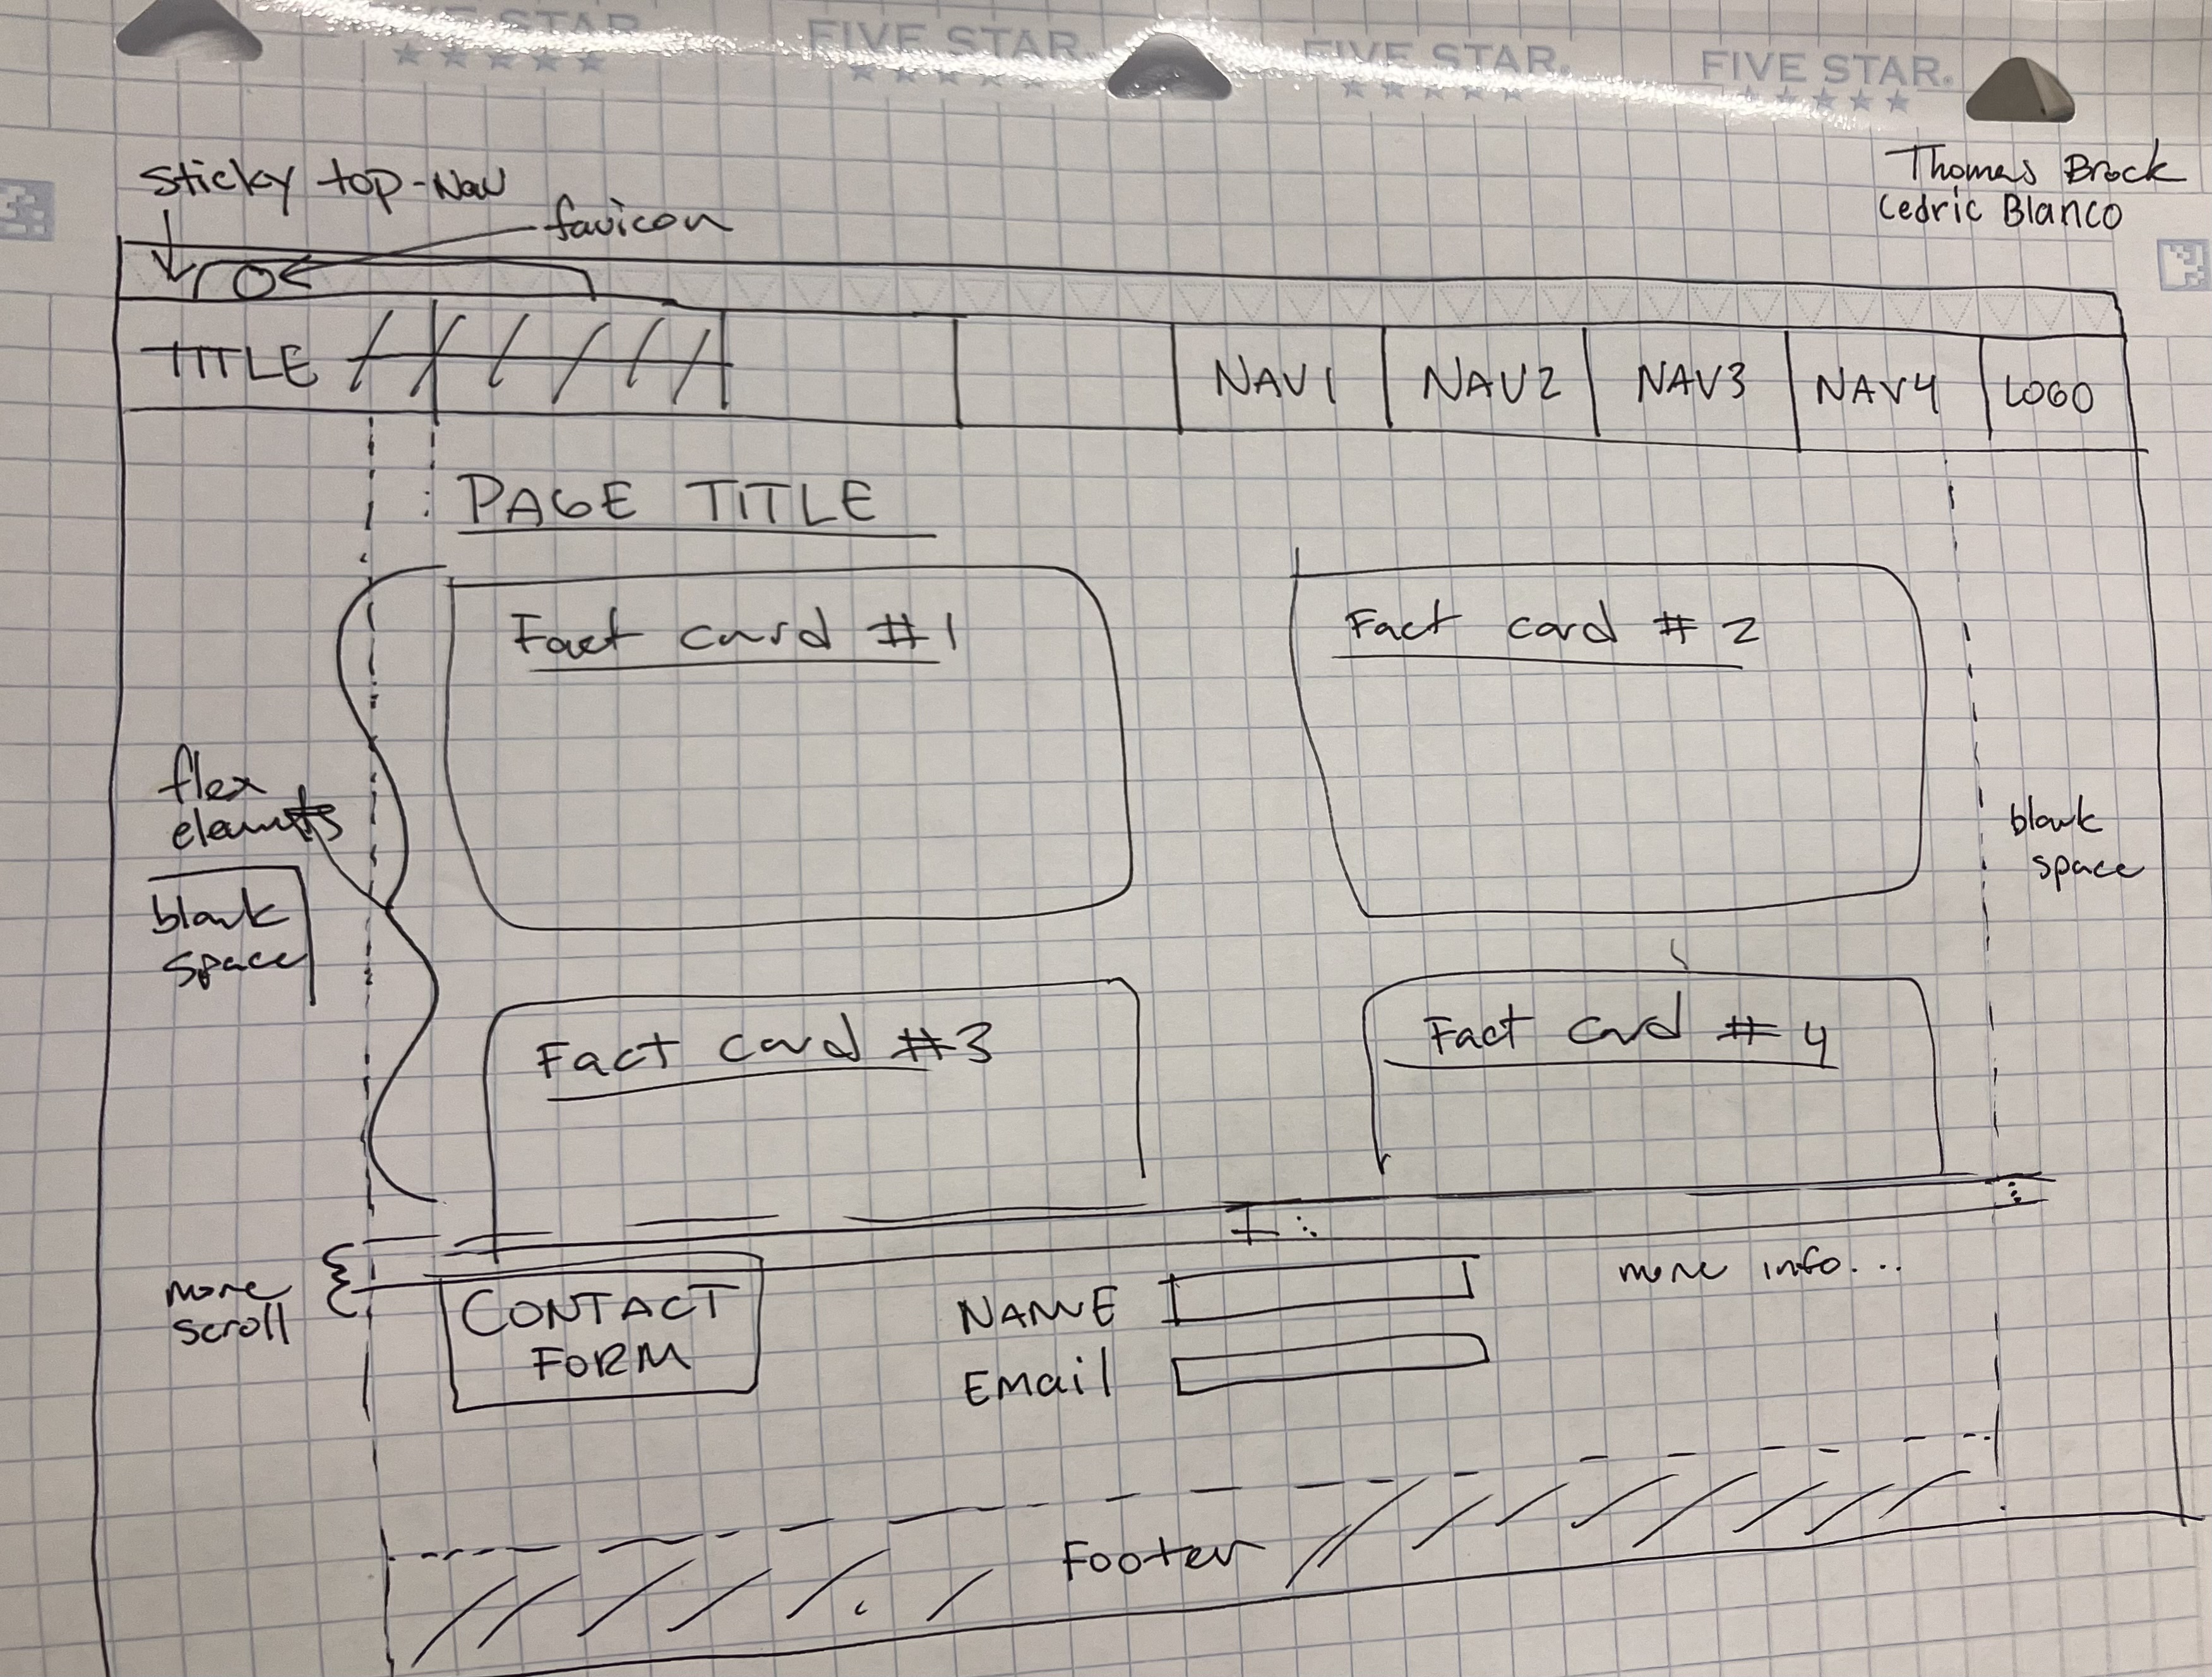 FIVE STAR
FIVE STAR.
FIVE STAR.
FIVE STAR.
Thomas Brock
Cedric Blanco
Sticky top-Nav
favicon
TITLE
NAV1
NAV2
NAV3
NAV4
LOGO
PAGE TITLE
Fact card #1
Fact card #2
flex
elements
blank
space
blank
space
Fact card #3
Fact card #4
more
scroll
CONTACT
FORM
NAME
Email
more info...
Footer